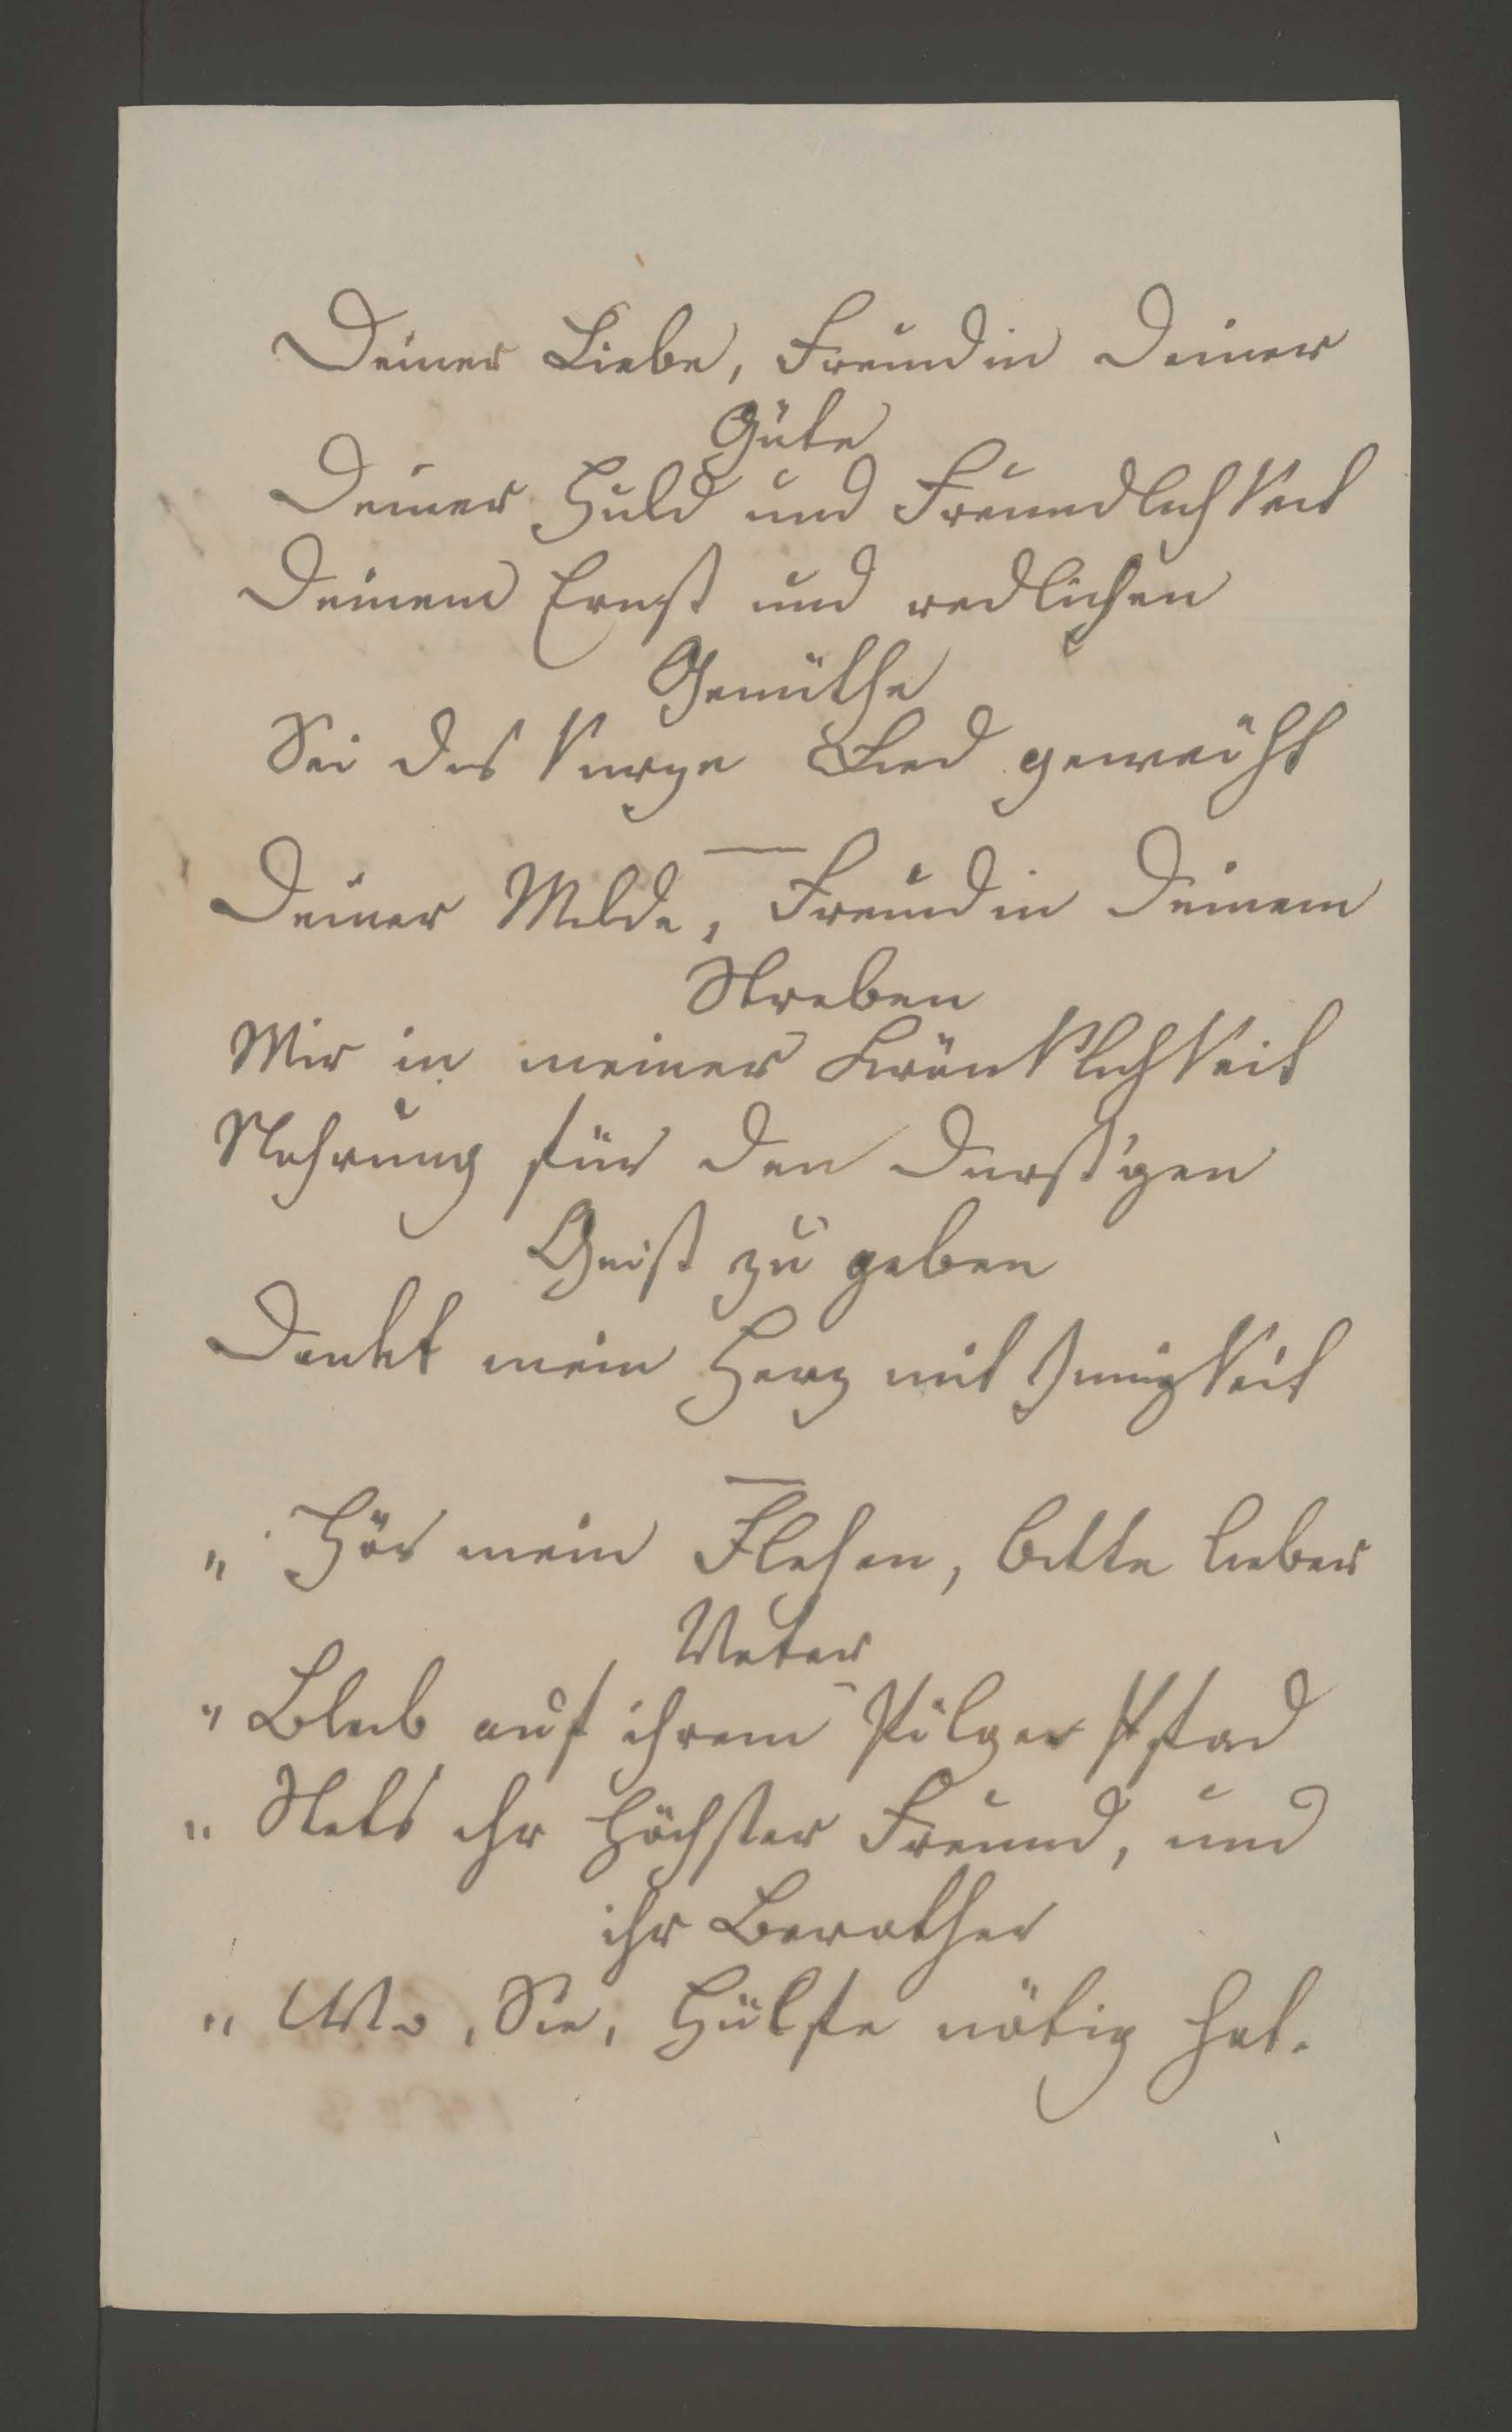 Deiner Liebe, Freundin Deiner
Güte
Deiner Huld und Freundlichkeit
Deinem Ernst und redlichen
Gemüthe
Sei das kurze Lied geweiht
Deiner Milde, Freundin Deinem
Streben
Mir in meiner Kränklichkeit
Nahrung für den durst'gen
Geist zu geben
Dankt mein Herz mit Innigkeit
" Hör mein Flehen, bitte lieber
Vater
" Bleib auf ihrem Pilger Pfad
" Stets ihr höchster Freund, und
ihr Berather
" Wo, Sie, Hülfe nötig hat.